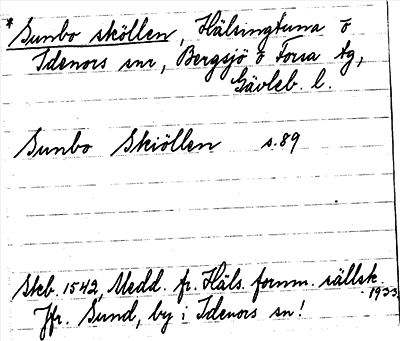 * Sunbo sköllen, Hälsingtuna o
Idenors snr, Bergsjö o Forsa tg,
Gävleb. l.
Sunbo Skiöllen s. 89
Skb. 1542, Medd. fr. Häls. fornm. sällsk.
1933.
Jfr. Sund, by i Idenors sn!